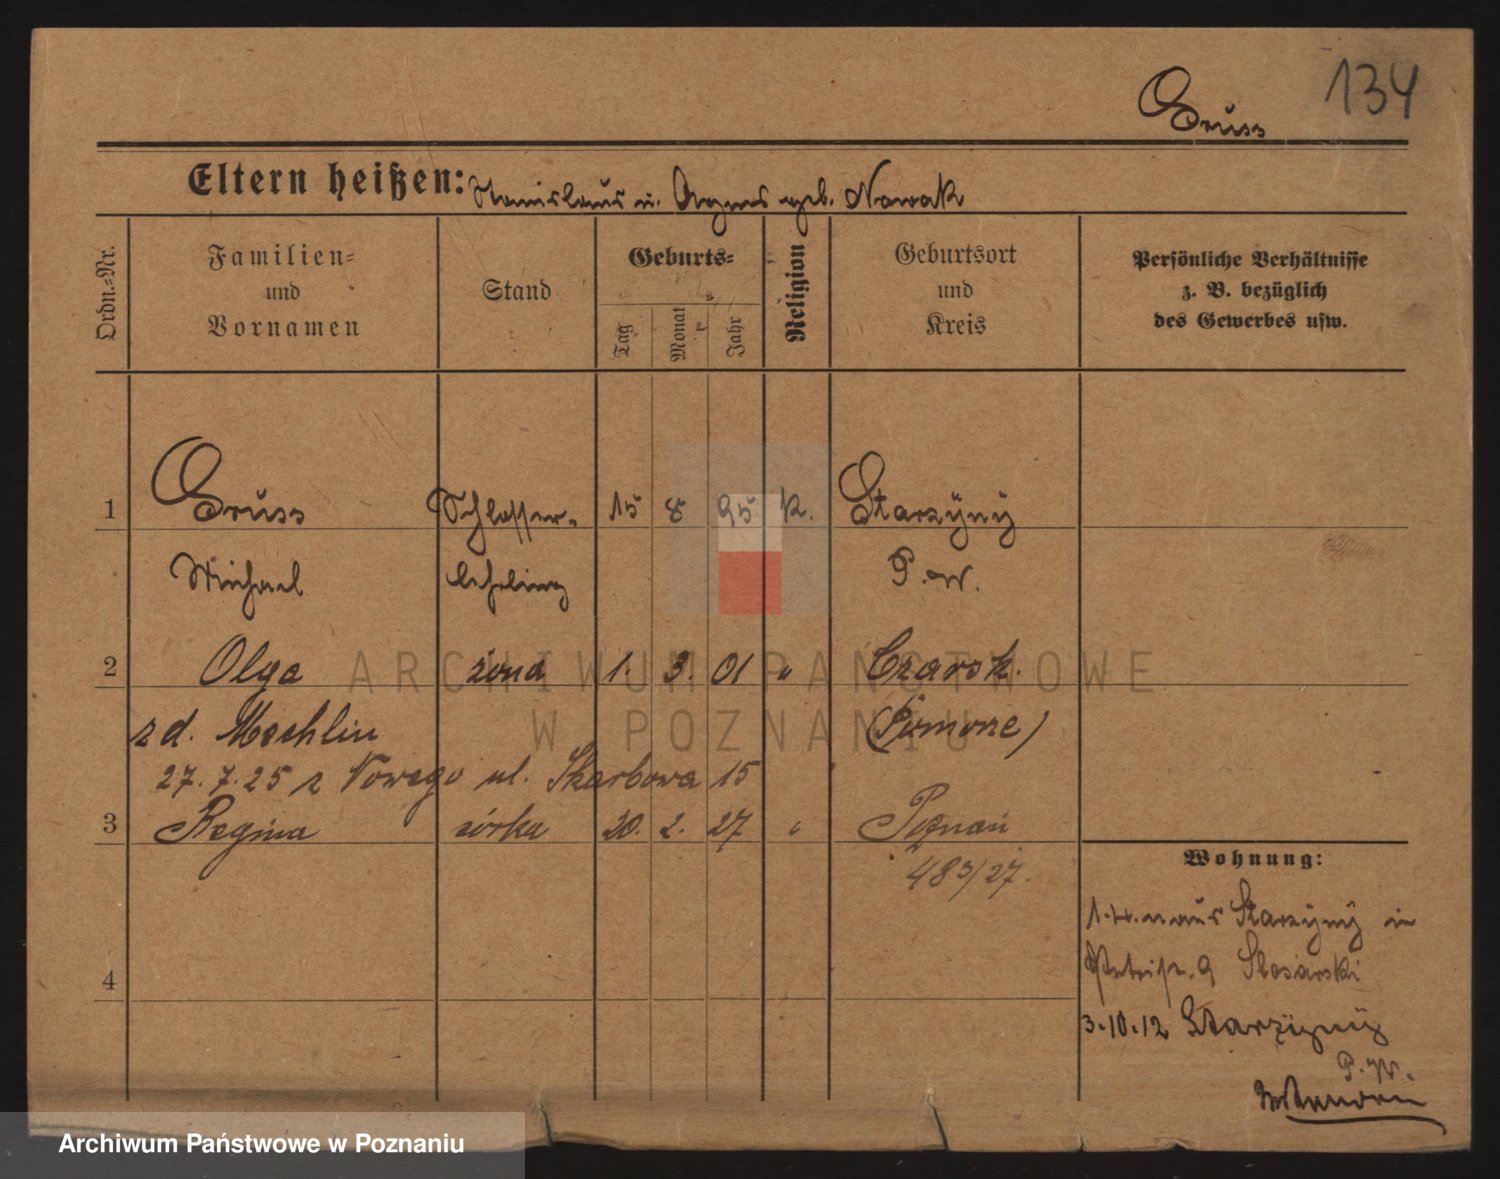 134
Gruss
Eltern heißen: Stanislaus u. Agnes geb. Nowak
Ordn.-Nr.
Familien- und Vornamen
Stand
Geburts-
Tag
Monat
Jahr
Religion
Geburtsort und Kreis
Persönliche Verhältnisse
z. B. bezüglich
des Gewerbes usw.
1 Gruss Schlosser- 15 8 95 K. Starzÿnÿ
Michael lehrling P. W.
2 Olga żona 1. 3. 01 " Czarsk.
z d. Mechlin (Pomorze)
27.7.25 z Nowego ul. Skarbowa 15
3 Regina córka 20. 2. 27 " Poznań
483/27.
Wohnung:
aus Starzÿnÿ in
9 Slosarski
4
3.10.12 Starzÿnÿ
P. W.
ARCHIWUM PAŃSTWOWE
W POZNANIU
Archiwum Państwowe w Poznaniu